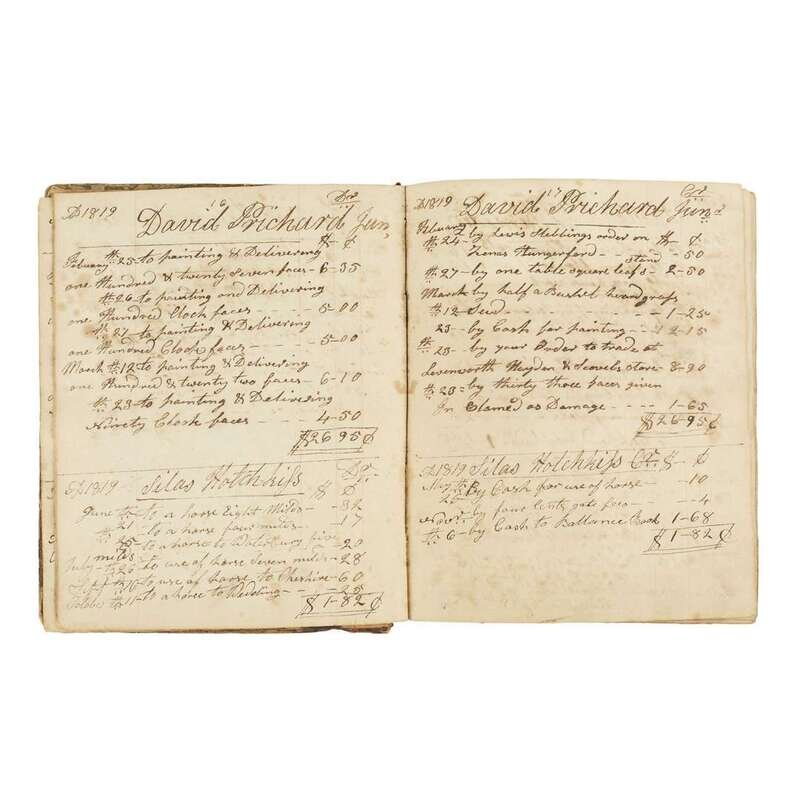 AD 1819
16
Dr
David Prichard Jun,
February th 25 to painting & Delivering $ ¢
one Hundred & twenty Seven faces - 6-35
th 26 to painting and Delivering
one Hundred Clock faces - - - - 5-00
to painting & Delivering
one Hundred Clock faces - - - 5-00
March th 12 to painting & Delivering
one Hundred & twenty two faces - 6-10
th 23 to painting & Delivering
Ninety Clock faces - - - 4-50
$26 95 ¢
AD 1819 Silas Hotchkiss Dr
$ ¢
June to a horse Eight Miles - - 32
21 to a horse four miles - - 17
25 to a horse to five
miles 20
July to use of horse Seven miles - 28
10 to use of horse to Cheshire - 60
October th 11 to a horse to Wedding - - 25
$ 1-82 ¢
AD 1819
17
Cr
David Prichard Junr
February
th 24 - by Lewis Heblings order on $ ¢
Hungerford - - - 50
stand
th 27 - by one table square leafs - 2-50
March by half a Bushel herdgrass
th 12 Seed - - - - 1-25
23 - by Cash for painting - - - 12-15
th 23 - by your Order to trade at
Levenworth Hayden & Scovels store - 8-90
th 23 = by thirty three faces given
In as Damage - - - - 1-65
$26-95 ¢
AD 1819 Silas Hotchkiss Cr. $ ¢
May th By Cash for use of horse - - - 10
by four Cents gate fees - - - 4
th 6 - by Cash to Ballance Book 1-68
$ 1-82 ¢